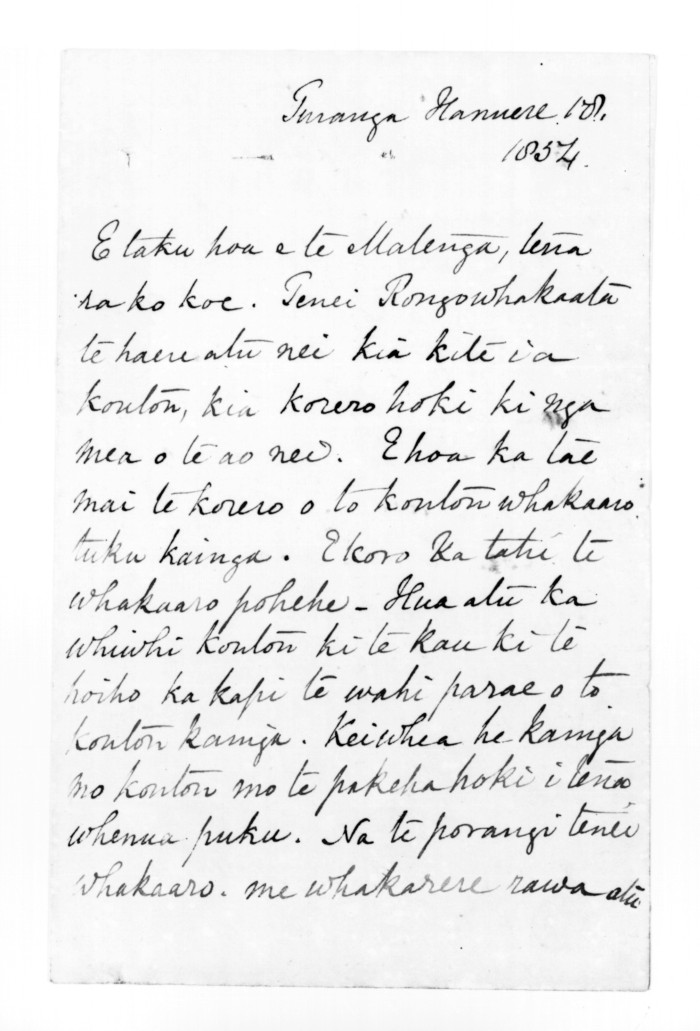 Turanga Hanuere 18.
1854.
E taku hoa e te Matenga, tena
ra ko koe. Tenei Rongowhakaata
te haere atu nei kia kite i a
koutou, kia korero hoki ki nga
mea o te ao nei. E hoa ka tae
mai te korero o to koutou whakaaro
tuku kainga. E koro Ka tahi te
whakaaro pohehe - Hua atu ka
whiwhi koutou ki te kau ki te
hoiho ka kapi te wahi parae o to
koutou kainga. Kei whea he kainga
mo koutou mo te pakeha hoki i tena
whenua puku. Na te porangi tenei
whakaaro. me whakarere rawa atu